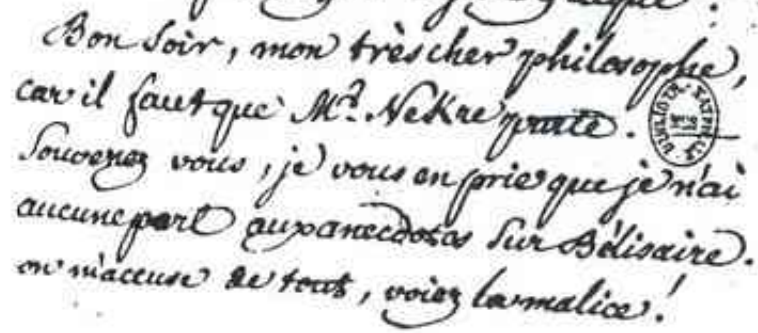 Bon soir, mon très cher philosophe,
car il faut que Mr. Nekre parte.
Souvenez vous, je vous en prie que je n'ai
aucune part aux anecdotes sur Bélisaire.
on m'accuse de tout, voiez la malice!